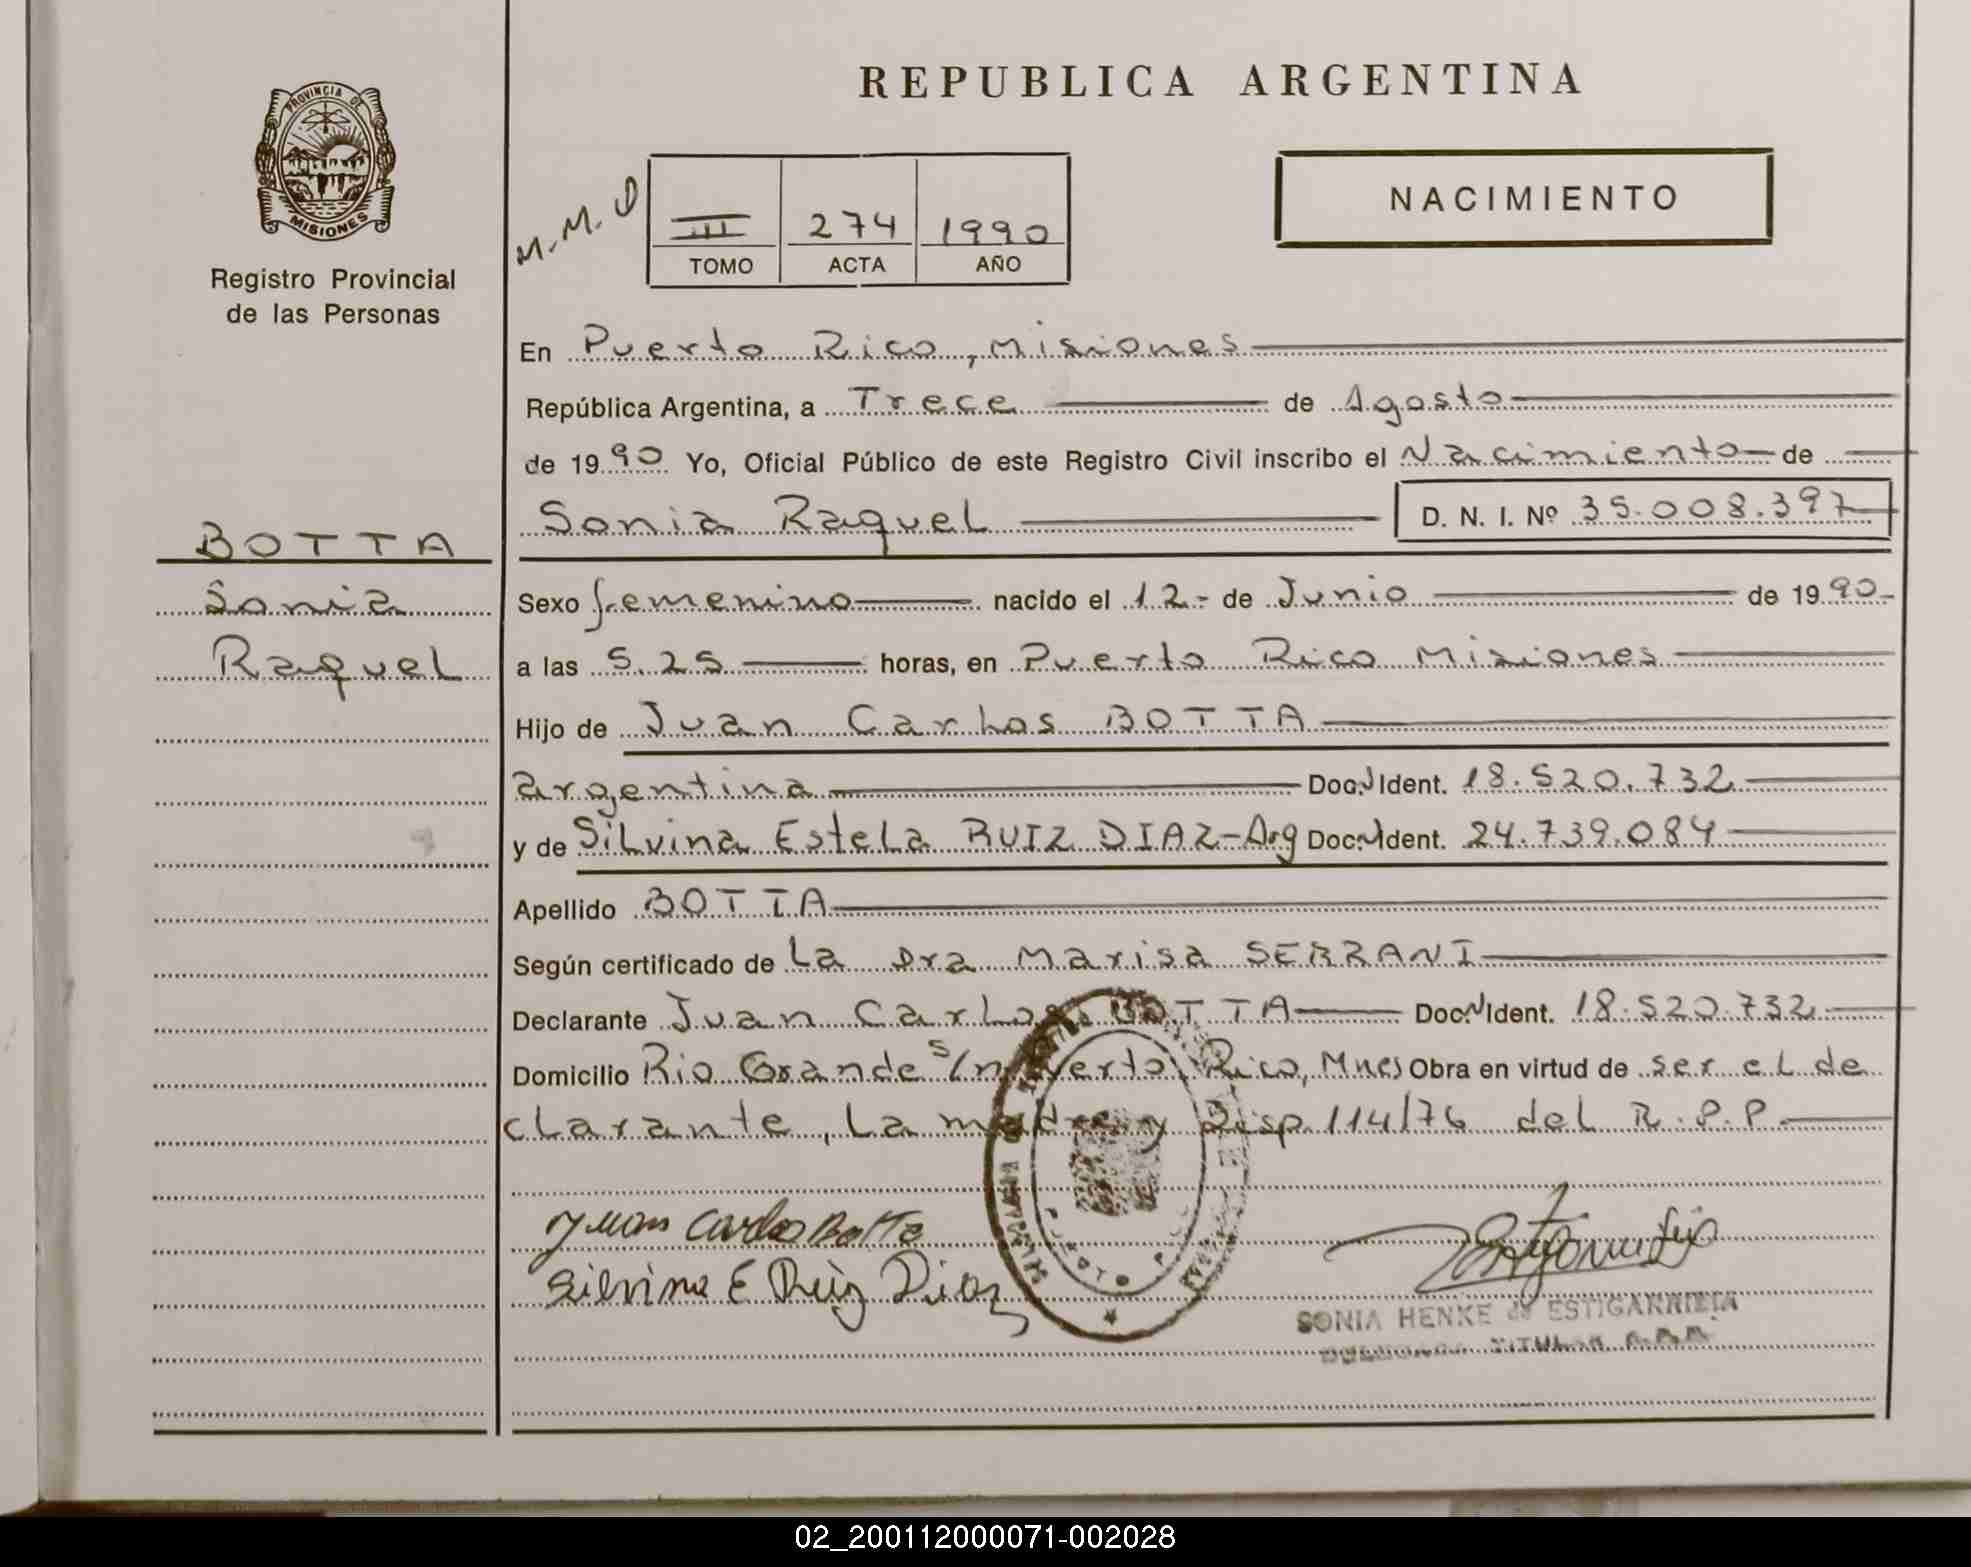 REPUBLICA ARGENTINA
PROVINCIA DE
MISIONES
Registro Provincial
de las Personas
M. M. D
III 274 1990
TOMO ACTA AÑO
NACIMIENTO
En Puerto Rico, Misiones
República Argentina, a Trece de Agosto
de 1990 Yo, Oficial Público de este Registro Civil inscribo el Nacimiento de
Sonia Raquel D. N. I. Nº 35.008.397
BOTTA
Sonia
Raquel
Sexo femenino nacido el 12- de Junio de 1990-
a las 5.25 horas, en Puerto Rico Misiones
Hijo de Juan Carlos BOTTA
argentina Doc. Ident. 18.520.732
y de Silvina Estela RUIZ DIAZ-Arg Doc. Ident. 24.739.084
Apellido BOTTA
Según certificado de La Dra Marisa SERRANI
Declarante Juan Carlos BOTTA Doc. Ident. 18.520.732
Domicilio Rio Grande s/n Puerto Rico, Mnes Obra en virtud de ser el de
clarante, La madre y Disp. 114/76 del R.P.P
Juan Carlos Botta
Silvina E Ruiz Diaz
SONIA HENKE de ESTIGARRIBIA
TITULAR
02_200112000071-002028